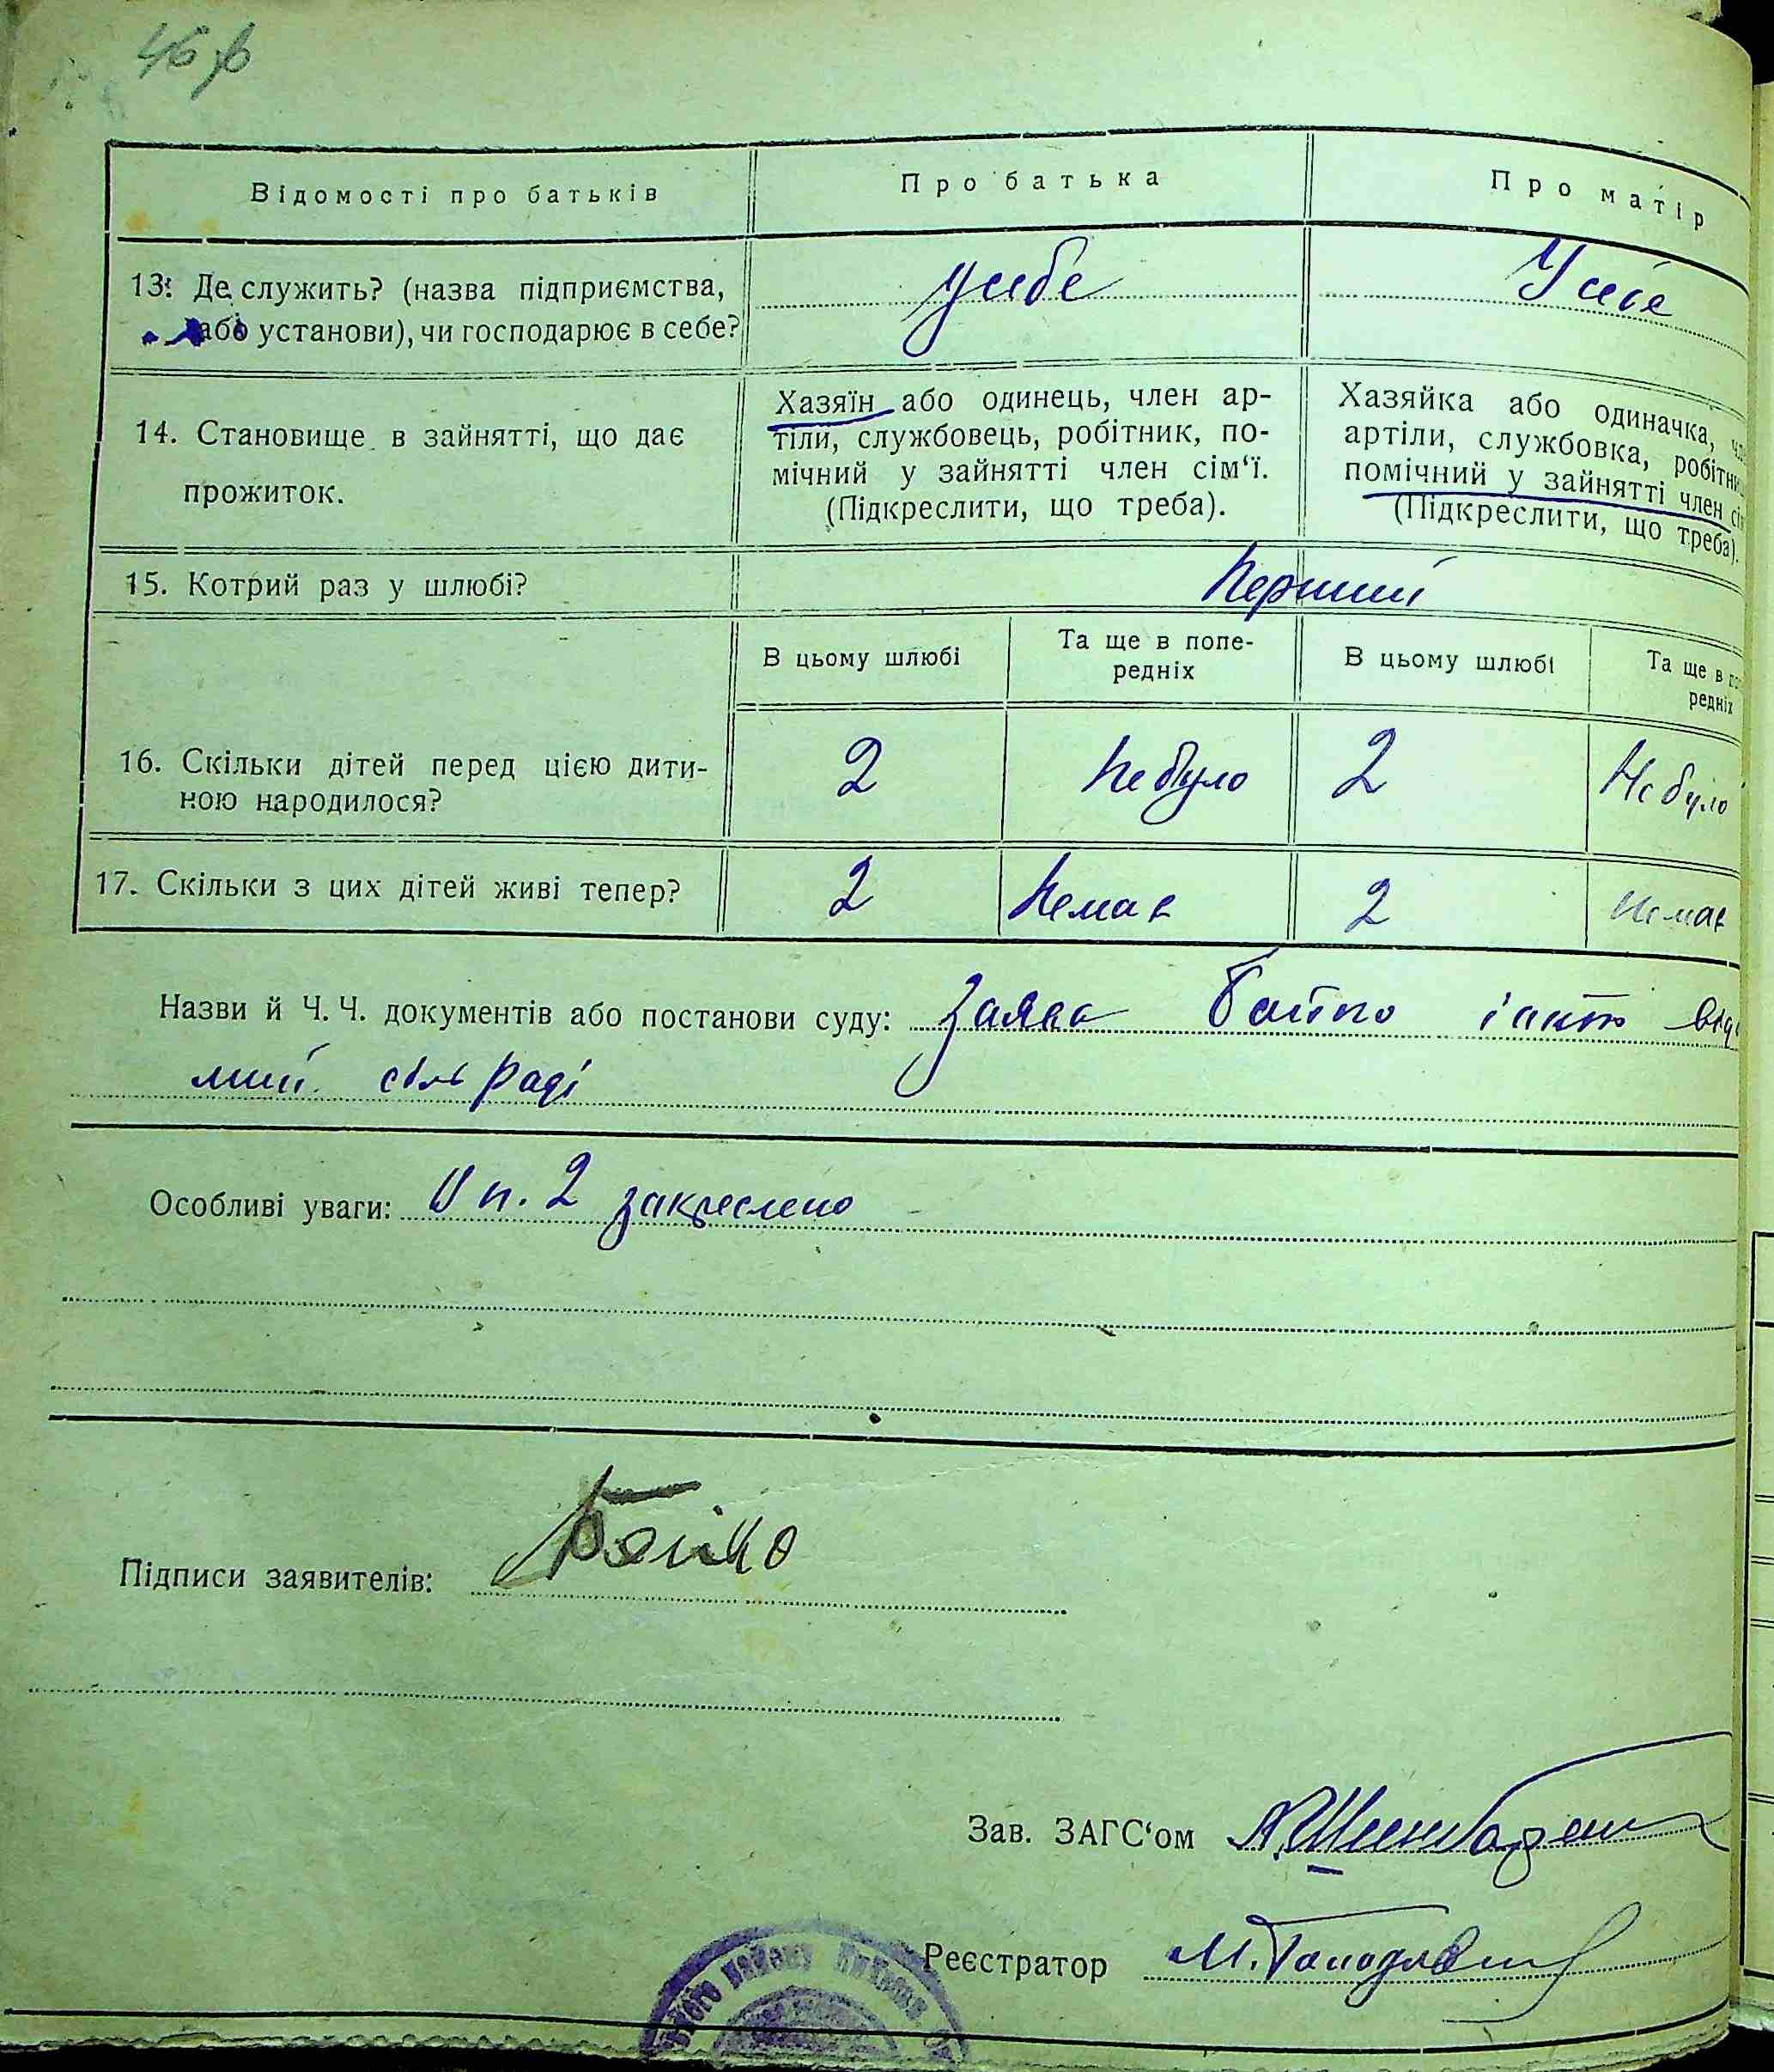 Відомості про батьків
Про батька
Про матір
13. Де служить? (назва підприємства,
або установи), чи господарює в себе?
усебе
Усебе
14. Становище в зайнятті, що дає
прожиток.
Хазяїн або одинець, член ар-
тіли, службовець, робітник, по-
мічний у зайнятті член сім‘ї.
(Підкреслити, що треба).
Хазяйка або одиначка,
артіли, службовка, робітни
помічний у зайнятті член сі
(Підкреслити, що треба).
15. Котрий раз у шлюбі?
Перший
В цьому шлюбі
Та ще в попе-
редніх
В цьому шлюбі
Та ще в по
редніх
16. Скільки дітей перед цією дити-
ною народилося?
2
Небуло
2
Не було
17. Скільки з цих дітей живі тепер?
2
Немає
2
Немає
Назви й Ч. Ч. документів або постанови суду: Заява
сіль раді
Особливі уваги: У п. 2 закреслено
Підписи заявителів: Бойко
Зав. ЗАГС‘ом
Реєстратор